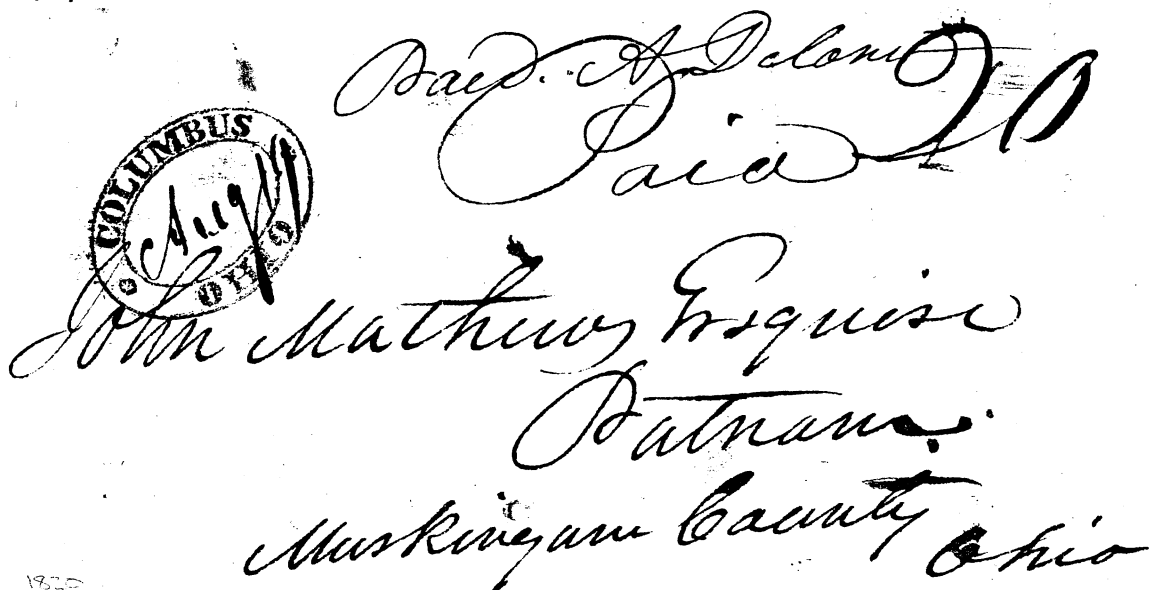 Paid. A. Delano
Paid 20
COLUMBUS
Aug 19
OHIO
John Mathews Esquire
Putnam.
Muskingum County Ohio
1820